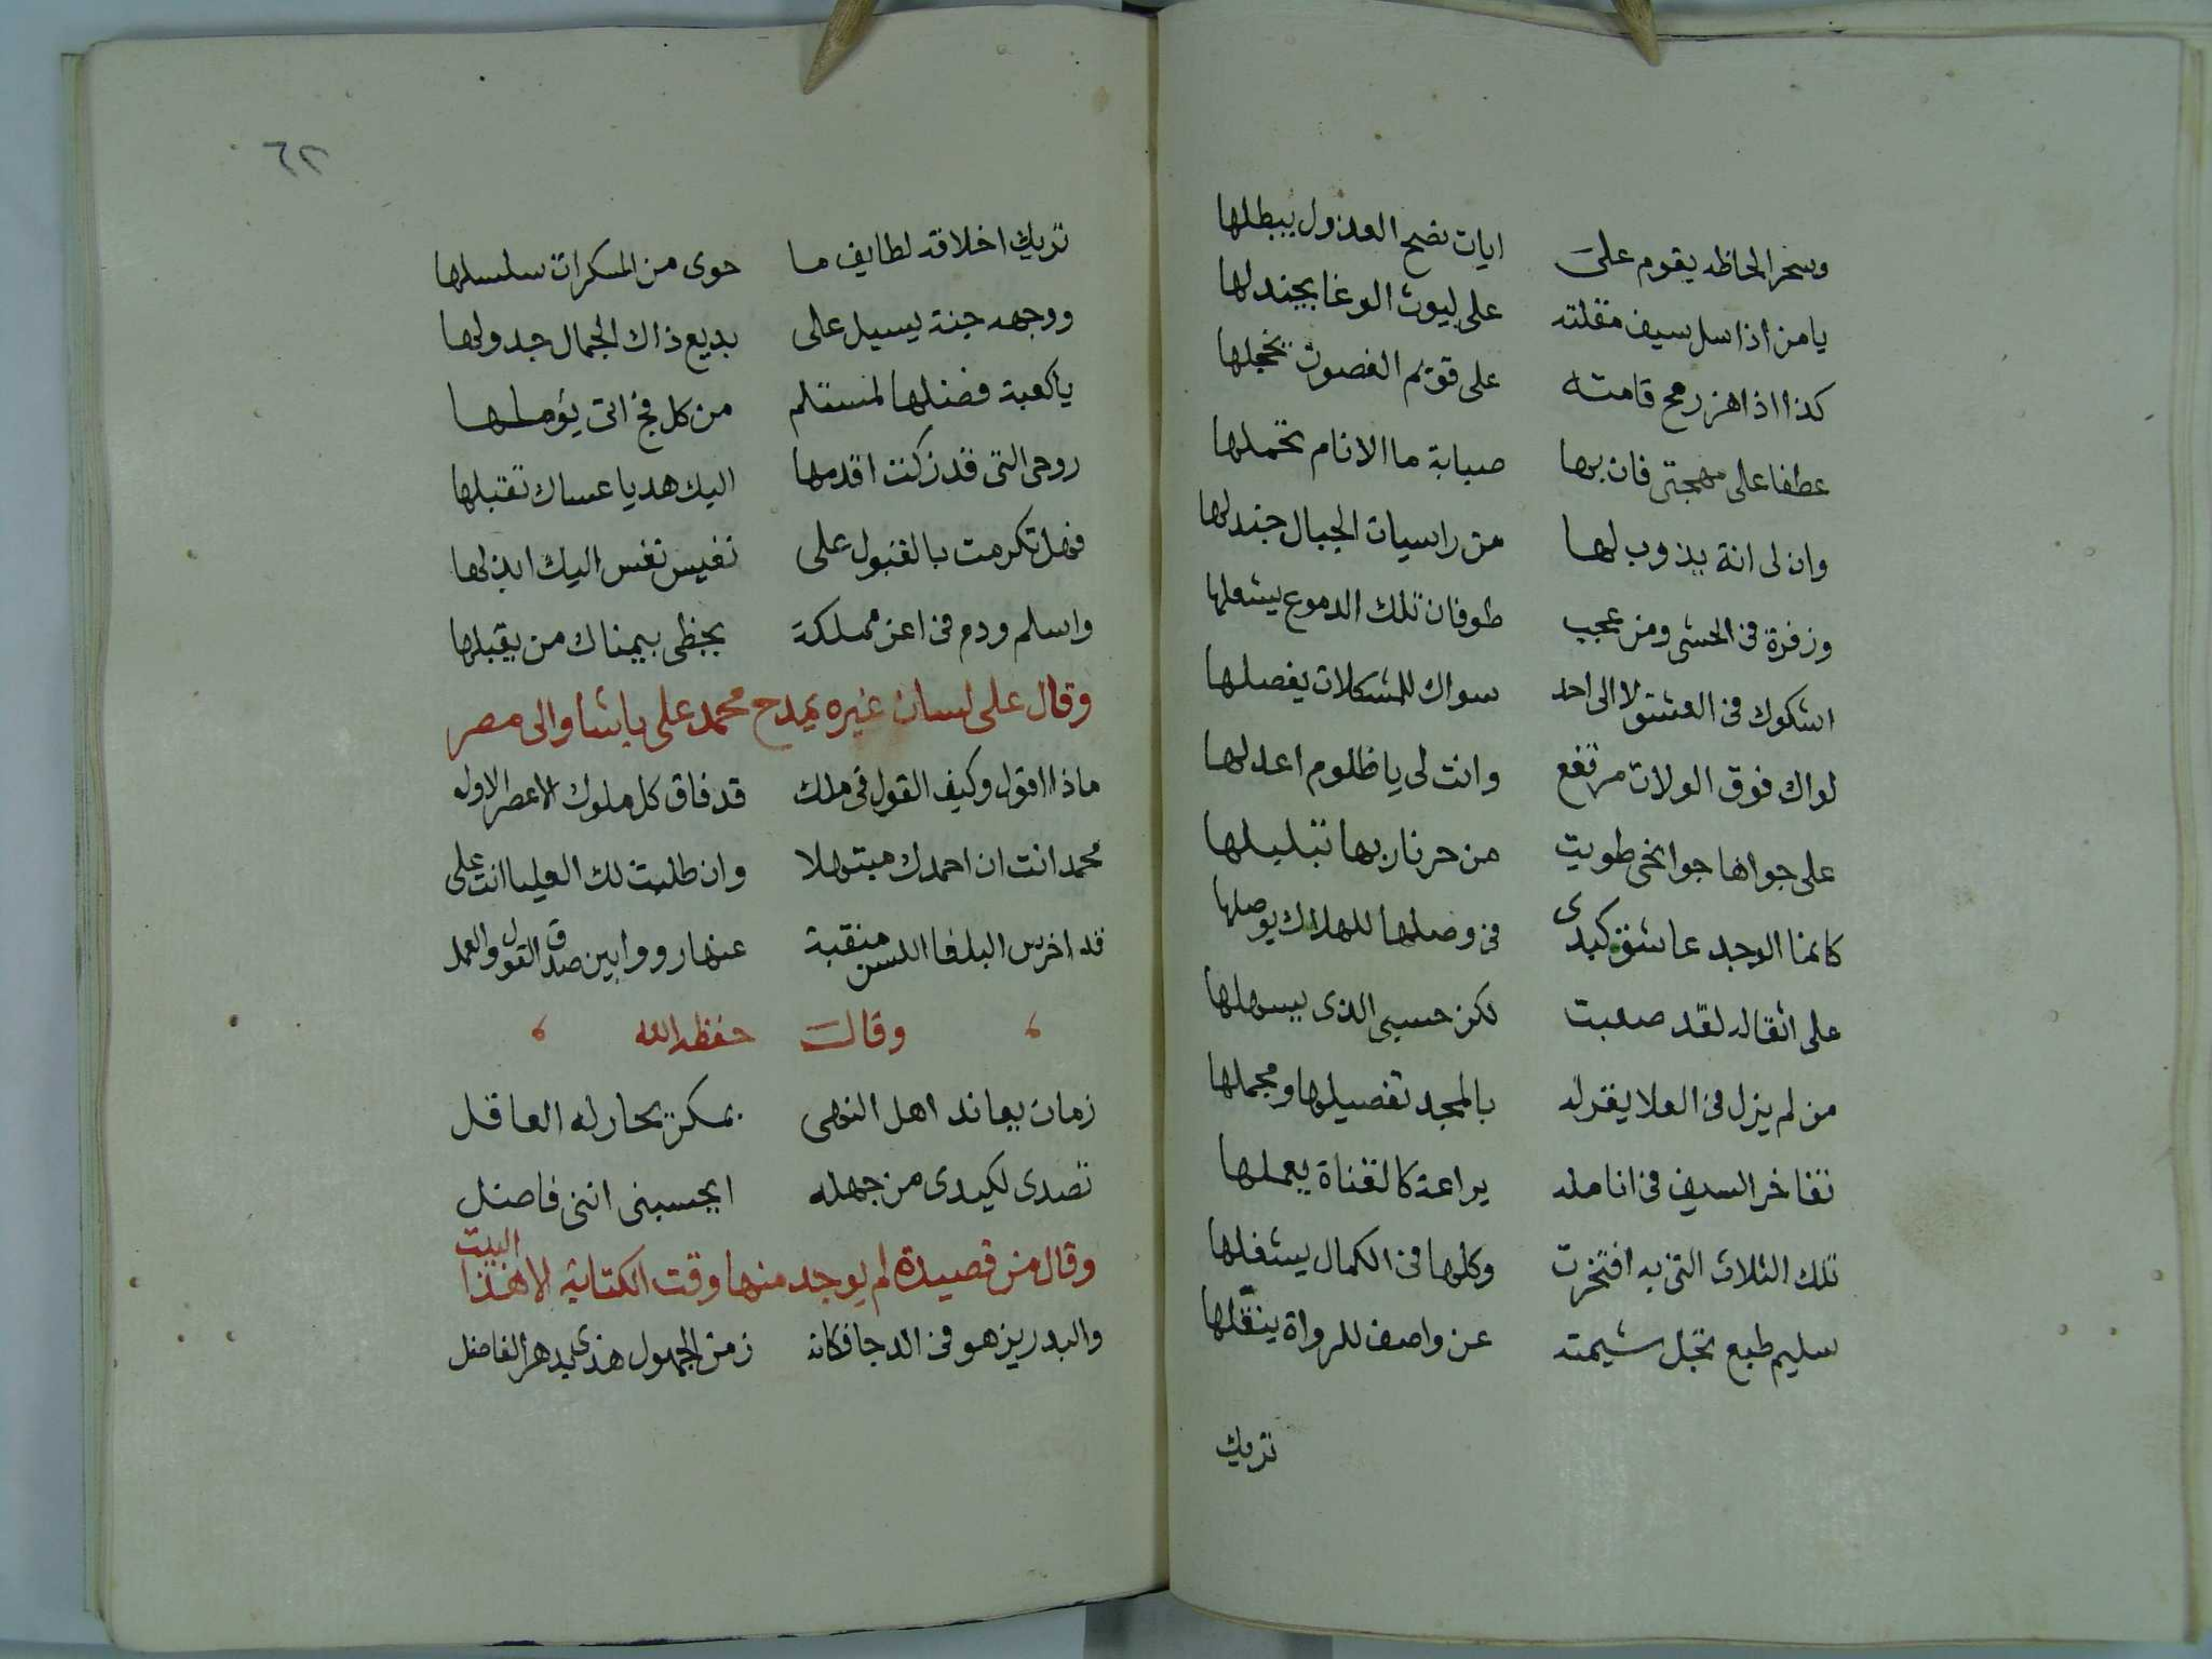 وسحر الحاظه يقوم على ايات نصح العذول يبطلها
يا من اذا سل سيف مقلته على ليوث الوغا يجندلها
كذا اذا هز رمح قامته على قويم الغصون يخجلها
عطفا على مهجتى فان بها صبابة ما الانام تحملها
وان لى انة يذوب لها من راسيات الجبال جندلها
وزفرة فى الحشى ومن عجب طوفان تلك الدموع يشعلها
اشكوك فى العشق لا الى احد سواك للمشكلات يفصلها
لواك فوق الولات مرتفع وانت لى يا ظلوم اعدلها
على جواها جوانحى طويت من حر نار بها تبليلها
كانما الوجد عاشق كبدى فى وصلها للهلاك يوصلها
على اثقاله لقد صعبت لكن حسيبى الذى يسهلها
من لم يزل فى العلا يقر له بالمجد تفصيلها ومجملها
تفاخر السيف فى انامله يراعة كالقناة يعملها
تلك الثلاث التى به افتخرت وكلها فى الكمال يشغلها
سليم طبع تجل شيمته عن واصف للرواة ينقلها
تريك
٦٢
تريك اخلاقه لطايف ما حوى من المسكرات سلسلها
ووجهه جنة يسيل على بديع ذاك الجمال جدولها
يا كعبة فضلها لمستلم من كل فج اتى يؤملها
روحى التى قد زكت اقدمها اليك هديا عساك تقبلها
فهل تكرمت بالقبول على نفيس نفس اليك ابذلها
واسلم ودم فى اعز مملكة يحظى بيمناك من يقبلها
وقال على لسان غيره يمدح محمد على باشا والى مصر
ماذا اقول وكيف القول فى ملك قد فاق كل ملوك الاعصر الاول
محمد انت ان احمدك مبتهلا وان طلبت لك العليا انت على
قد اخرس البلغا اللسن منقبة عنها رووا بين صدق القول والعمل
وقال حفظه الله
زمان يعاند اهل النهى بمكر يحار له العاقل
تصدى لكيدى من جهله ايحسبنى اننى فاضل
وقال من قصيدة لم يوجد منها وقت الكتابة الا هذا البيت
والبدر يزهو فى الدجا فكانه زمن الجهول هذى بدهر الفاضل